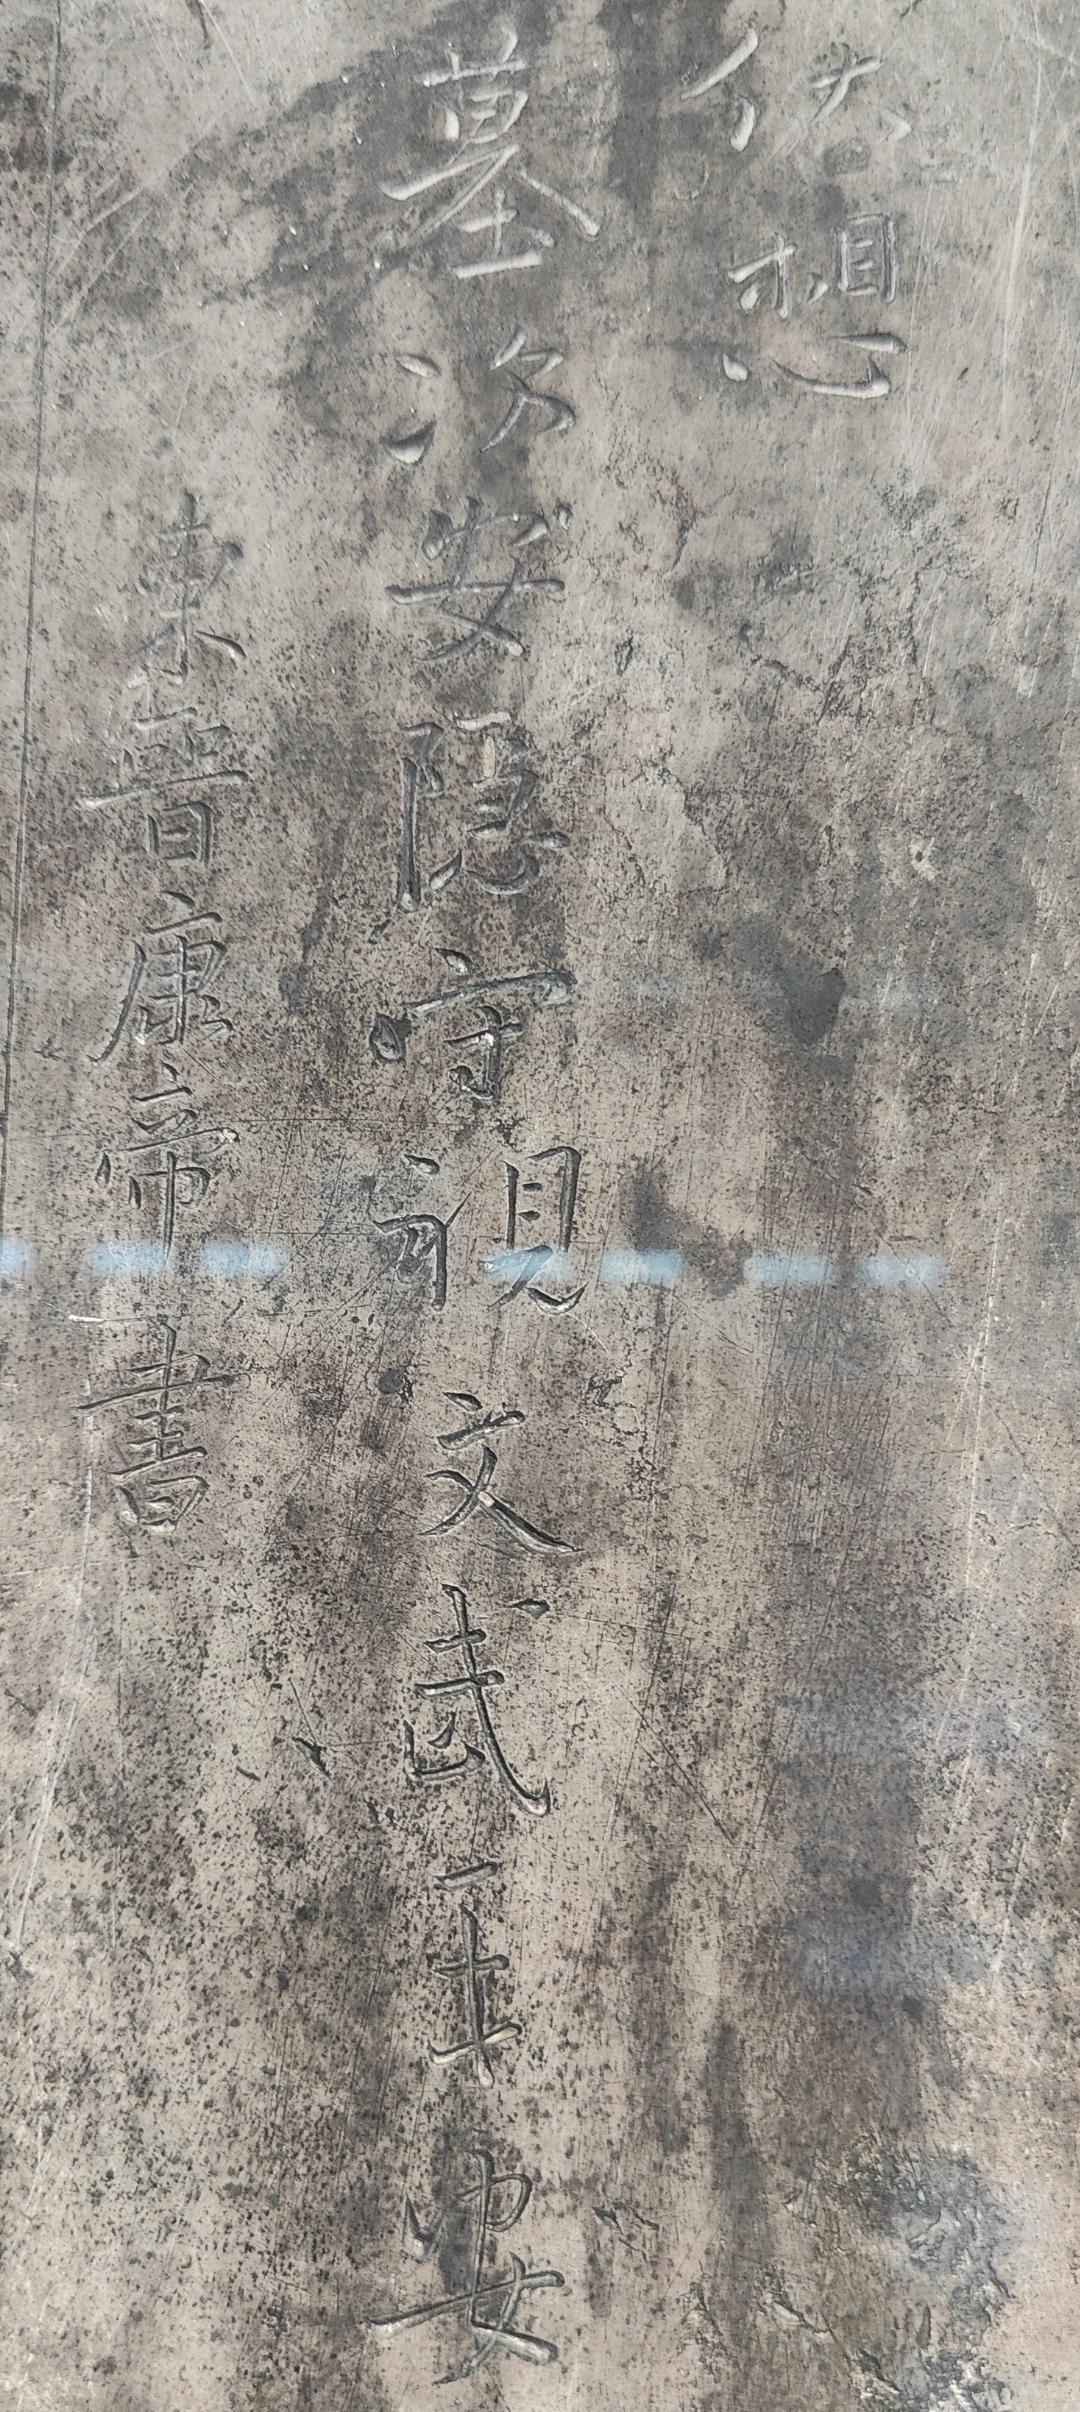 伏想
墓次安隱守視文武平安
東晉康帝書